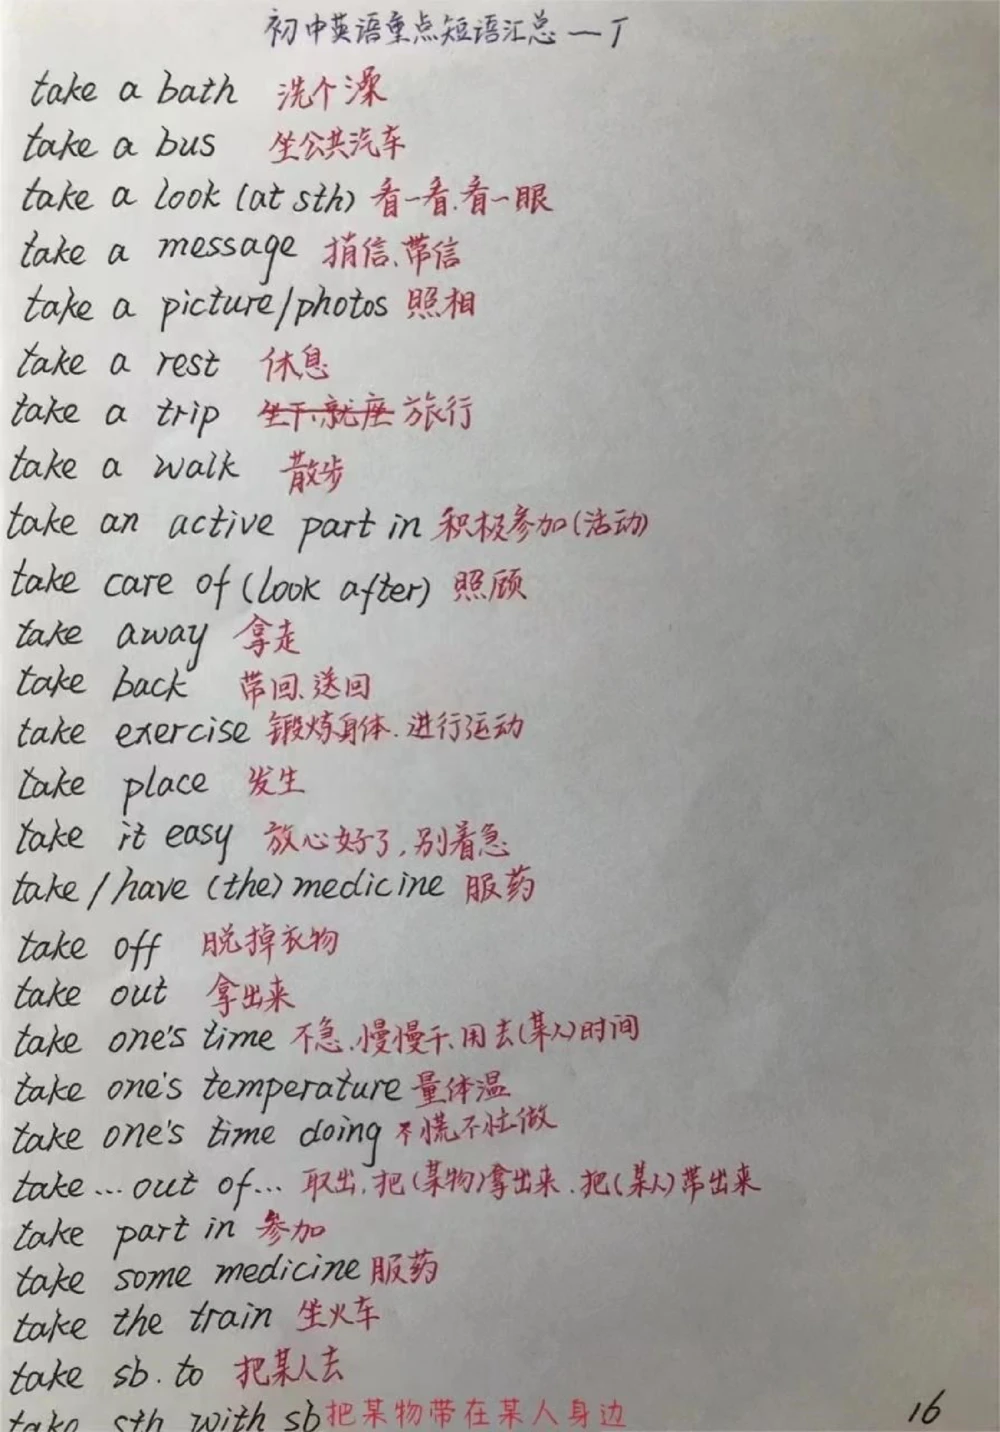 初中英语重点短语汇总—T
take a bath 洗个澡
take a bus 坐公共汽车
take a look (at sth) 看一看.看一眼
take a message 捎信、带信
take a picture/photos 照相
take a rest 休息
take a trip 坐下、就座 旅行
take a walk 散步
take an active part in 积极参加(活动)
take care of (look after) 照顾
take away 拿走
take back 带回、送回
take exercise 锻炼身体.进行运动
take place 发生
take it easy 放心好了,别着急
take/have (the) medicine 服药
take off 脱掉衣物
take out 拿出来
take one's time 不急、慢慢干、用去(某人)时间
take one's temperature 量体温
take one's time doing 不慌不忙做
take...out of... 取出.把(某物)拿出来.把(某人)带出来
take part in 参加
take some medicine 服药
take the train 坐火车
take sb. to 把某人去
take sth with sb 把某物带在某人身边
16